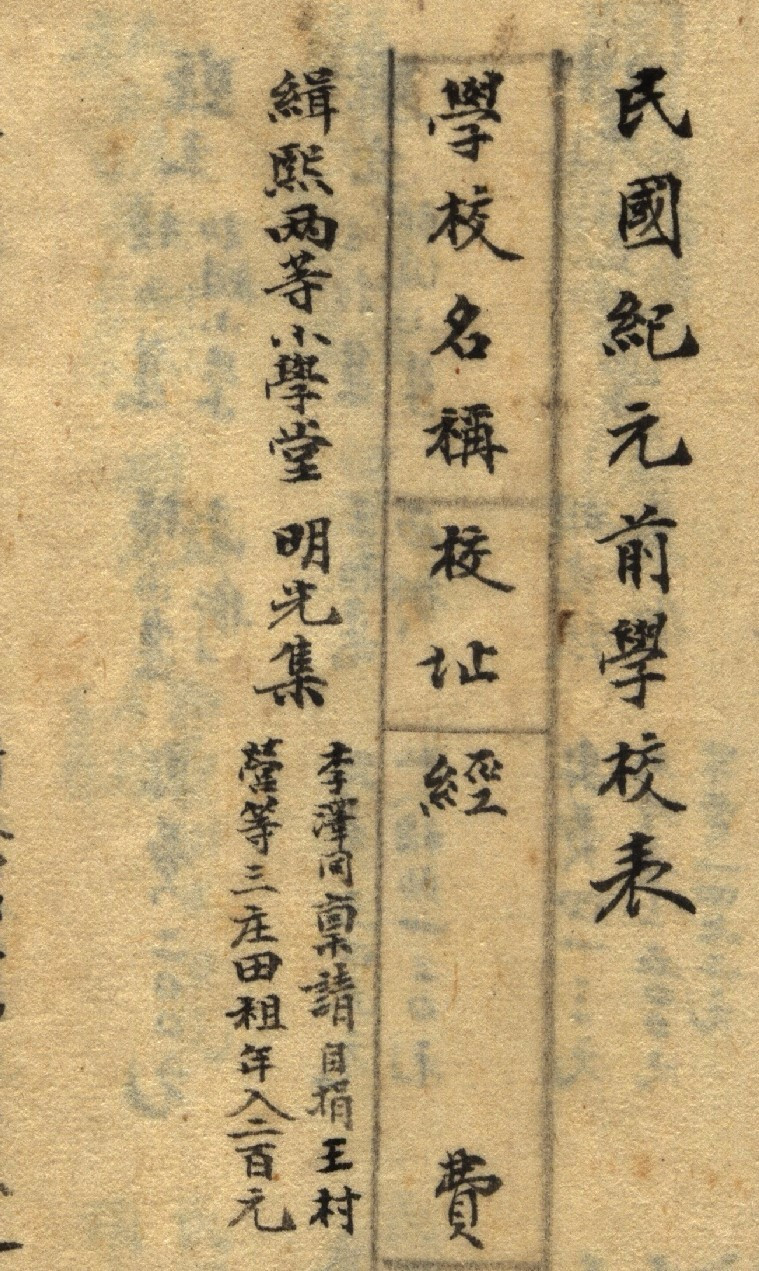 民國紀元前學校表
學校名稱
校址
經費
緝熙两等小學堂
明光集
李澤同稟請自捐王村
營等三庄田租年入二百元